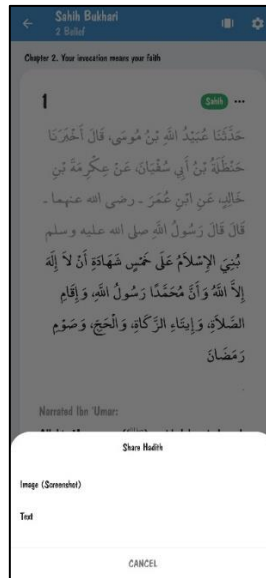 Sahih Bukhari
2 Belief
Chapter 2. Your invocation means your faith
1
Sahih
حَدَّثَنَا عُبَيْدُ اللَّهِ بْنُ مُوسَى، قَالَ أَخْبَرَنَا
حَنْظَلَةُ بْنُ أَبِي سُفْيَانَ، عَنْ عِكْرِمَةَ بْنِ
خَالِدٍ، عَنِ ابْنِ عُمَرَ ـ رضى الله عنهما ـ
قَالَ قَالَ رَسُولُ اللَّهِ صلى الله عليه وسلم
بُنِيَ الإِسْلاَمُ عَلَى خَمْسٍ شَهَادَةِ أَنْ لاَ إِلَهَ
إِلاَّ اللَّهُ وَأَنَّ مُحَمَّدًا رَسُولُ اللَّهِ، وَإِقَامِ
الصَّلاَةِ، وَإِيتَاءِ الزَّكَاةِ، وَالْحَجِّ، وَصَوْمِ
رَمَضَانَ
Narrated Ibn 'Umar:
Share Hadith
Image (Screenshot)
Text
CANCEL